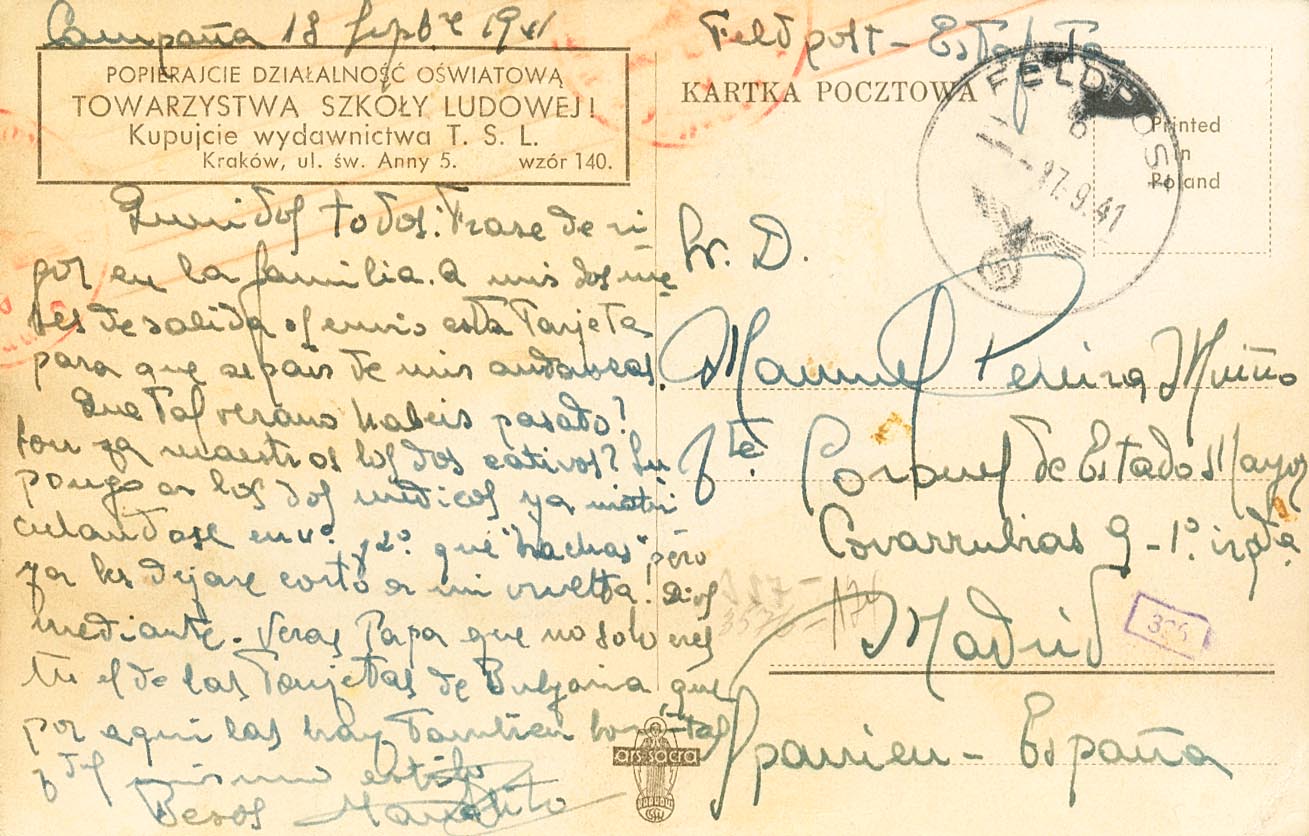 Campaña 18 Sepbre 1941
POPIERAJCIE DZIAŁALNOŚĆ OŚWIATOWĄ
TOWARZYSTWA SZKOŁY LUDOWEJ!
Kupujcie wydawnictwa T. S. L.
Kraków, ul. św. Anny 5. wzór 140.
todos: Frase de ri-
gor en la familia. A mis dos me
ses de salida os envio esta Tarjeta
para que sepais de mis andanzas.
Que tal verano habeis pasado?
Son ya maestros los dos cativos? Su
pongo a los dos medicos ya matri
culandose en 1º y 2º. que "hachas" pero
ya les dejare corto a mi vuelta! Dios
mediante. Veras Papa que no solo eres
tu el de las Tarjetas de Bulgaria que
por aqui las hay tambien bonitas
y del mismo estilo
Besos Manolito
Feldpost - Estafeta
KARTKA POCZTOWA
FELDPOST
b
-17.9.41
Printed
in
Poland
Sr. D.
Manuel Pereira
Tte. Coronel de Estado Mayor
Covarrubias 9 - 1º izqda.
Madrid
Spanien - España
ars sacra